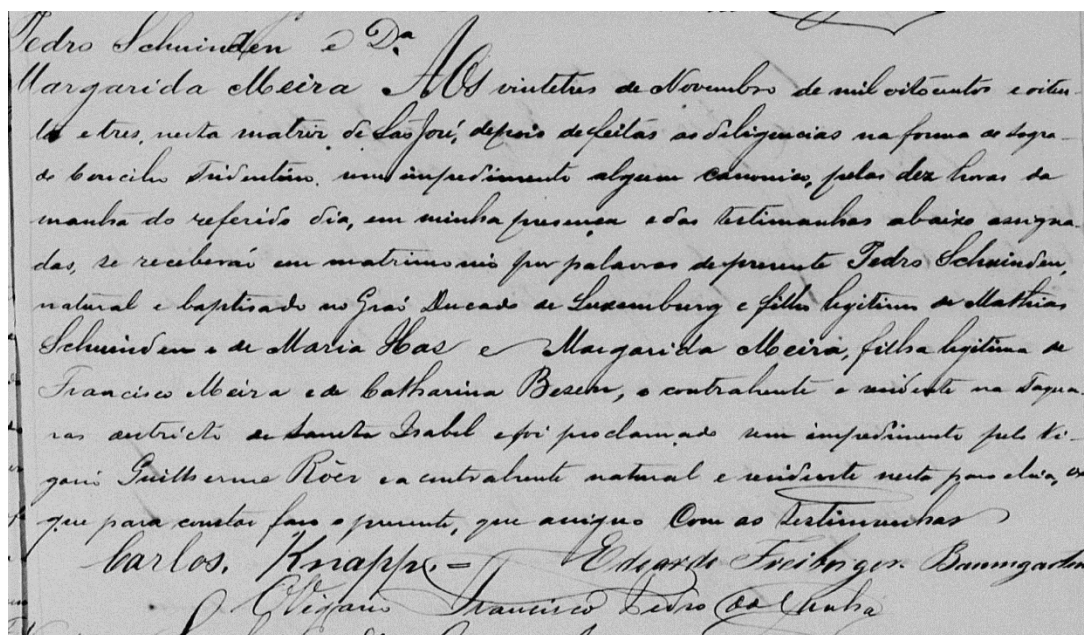 Pedro Schuinden e Dª
Margarida Meira Aos vintetres de Novembro de mil oitocentos e oiten-
ta e tres, nesta matriz de São José, depois de feitas as diligencias na forma do Sagra-
do Concilio Tridentino, sem impedimento algum canonico, pelas dez horas da
manhã do referido dia, em minha presença e das testimunhas abaixo assigna-
das, se receberaõ em matrimonio por palavras de presente Pedro Schuinden,
natural e baptisado no Graõ Ducado de Luxemburg e filho legitimo de Mathias
Schuinden e de Maria Has e Margarida Meira, filha legitima de
Francisco Meira e de Catharina Besen, o contrahente e residente na Taqua-
ras districto de Sancta Isabel e foi proclamado sem impedimento pelo Vi-
gario Guilherme Röer e a contrahente natural e residente nesta parochia,
que para constar faço o presente, que assigno Com as testimunhas
Carlos. Knapp. =
Eduardo Freiberger. Baumgarten
O Vigario Francisco Pedro da Cunha